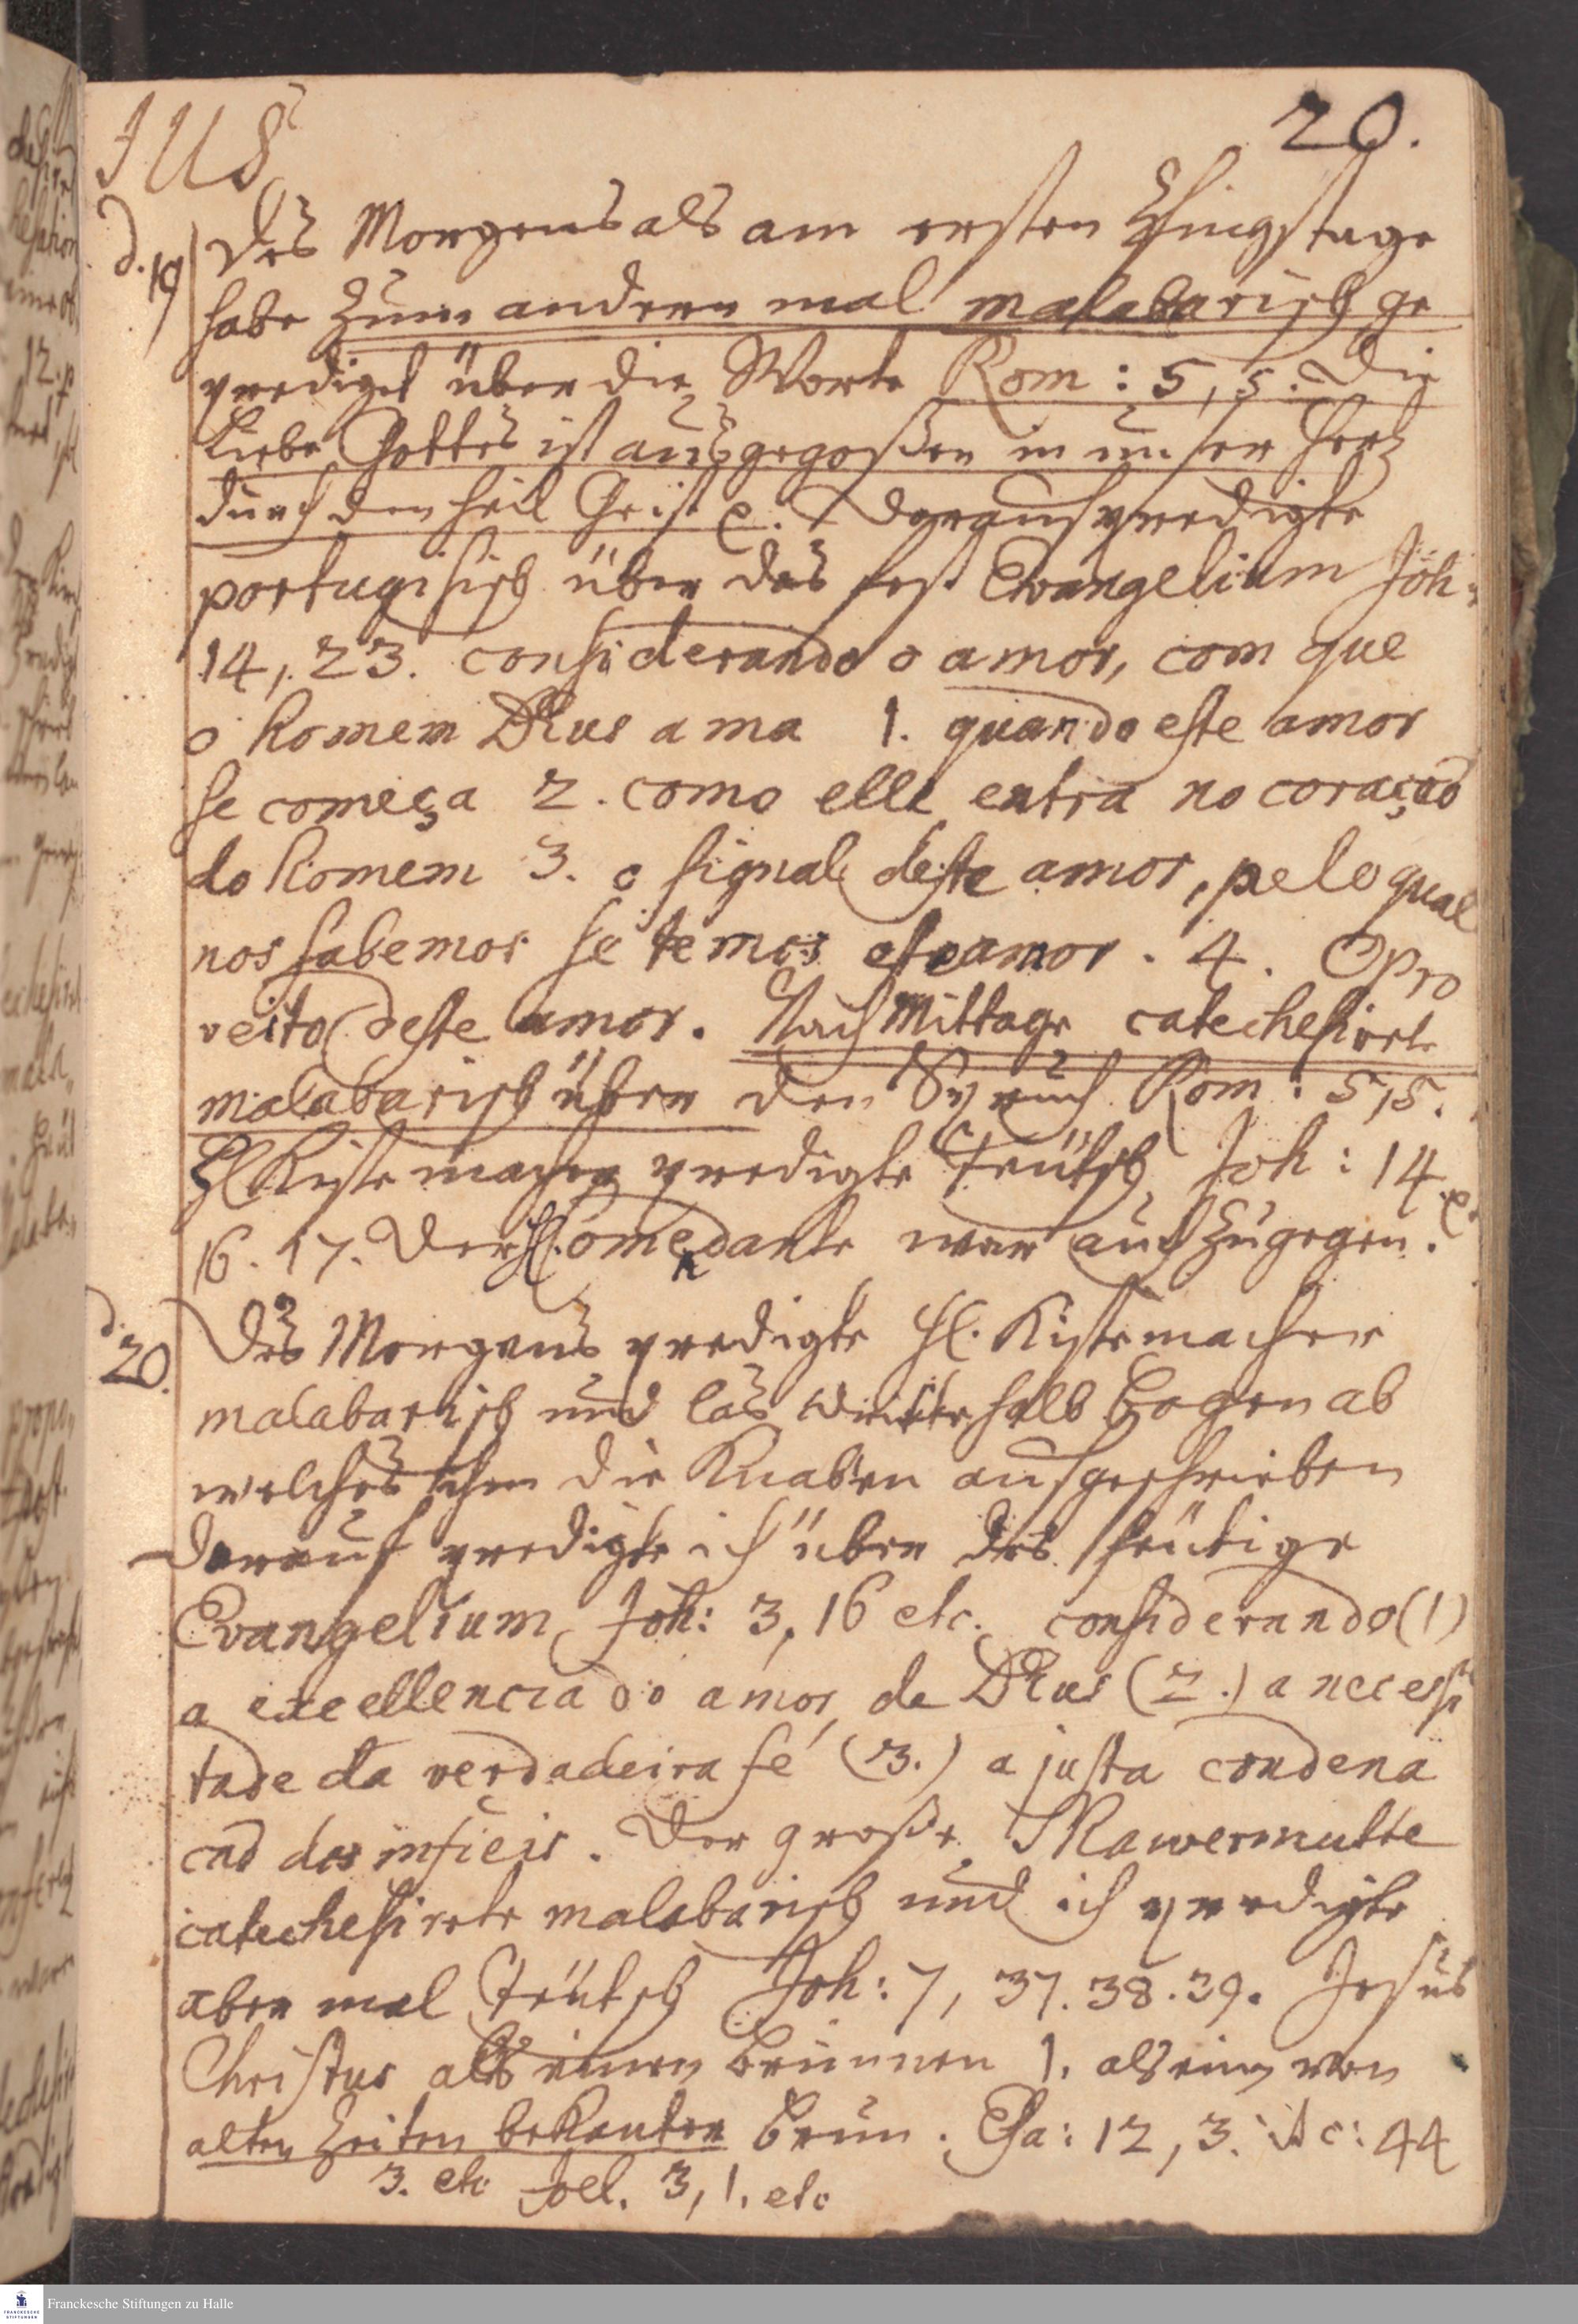 20.
JUS
d. 19 Des Morgens als am ersten Pfingstage
habe zum andern mal malabarisch ge
prediget über die Worte Rom: 5, 5. Die
Liebe Gottes ist ausgegoßen in unser Hertz
durch den Heil Geist e. Darauf predigte
portugisisch über das fest Evangelium Joh:
14, 23. considerando o amor, com que
o homem DEus ama 1. quando este amor
se começa 2. como elle entra no coraçaõ
do homem 3. o signal deste amor, pelo qual
nos sabemos se temos este amor. 4. O pro
veito deste amor. Nach Mittage catechesirte
malabarisch über den Spruch Rom: 5, 5.
H Kistemacher predigte Teütsch Joh: 14
16. 17. Der H. Comendante war auch zugegen.
d. 20. Des Morgens predigte H. Kistemacher
malabarisch und las halb Bogen ab
welches ihm die Knaben aufgeschrieben
darauf predigte ich über das heütige
Evangelium Joh: 3, 16 etc. considerando (1)
a excellencia do amor de DEus (2.) a necessi
tade da verdadeira fé (3.) a justa condena
caõ dos infieis. Der große Mawermutte
catechesirete malabarisch und ich predigte
aber mal Teütsch Joh: 7, 37. 38. 39. Jesus
Christus als einen Brunnen 1. als ein von
alten Zeiten bekanter Brun. Esa: 12, 3. it c: 44
3. etc Joel. 3, 1. etc
Franckesche Stiftungen zu Halle